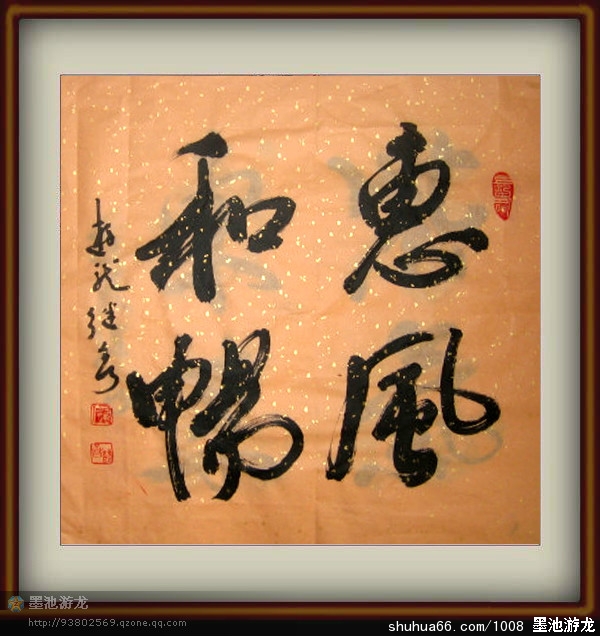 惠風
和暢
墨池游龙
http://93802569.qzone.qq.com
shuhua66.com/1008 墨池游龙